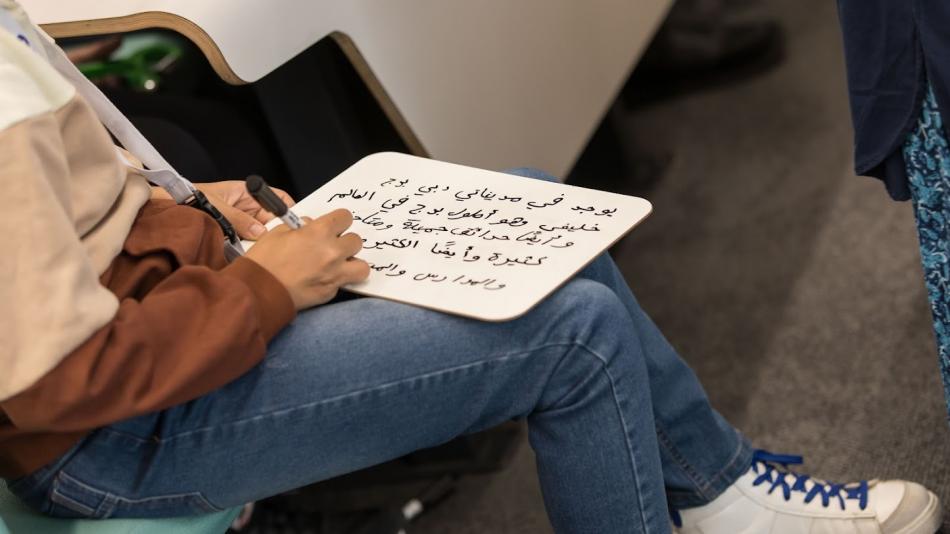 يوجد في مدينتي دبي برج
خليفة وهو أطول برج في العالم
وأيضًا حدائق جميلة
كثيرة وأيضًا الكثير
والمدارس